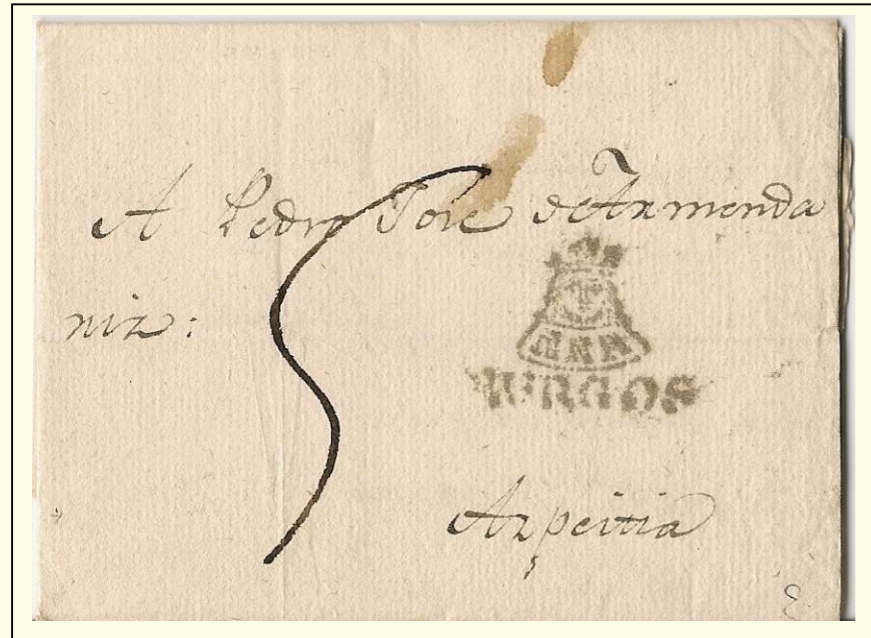 A Pedro Jose de Armenda
riz:
5
BURGOS
Azpeitia